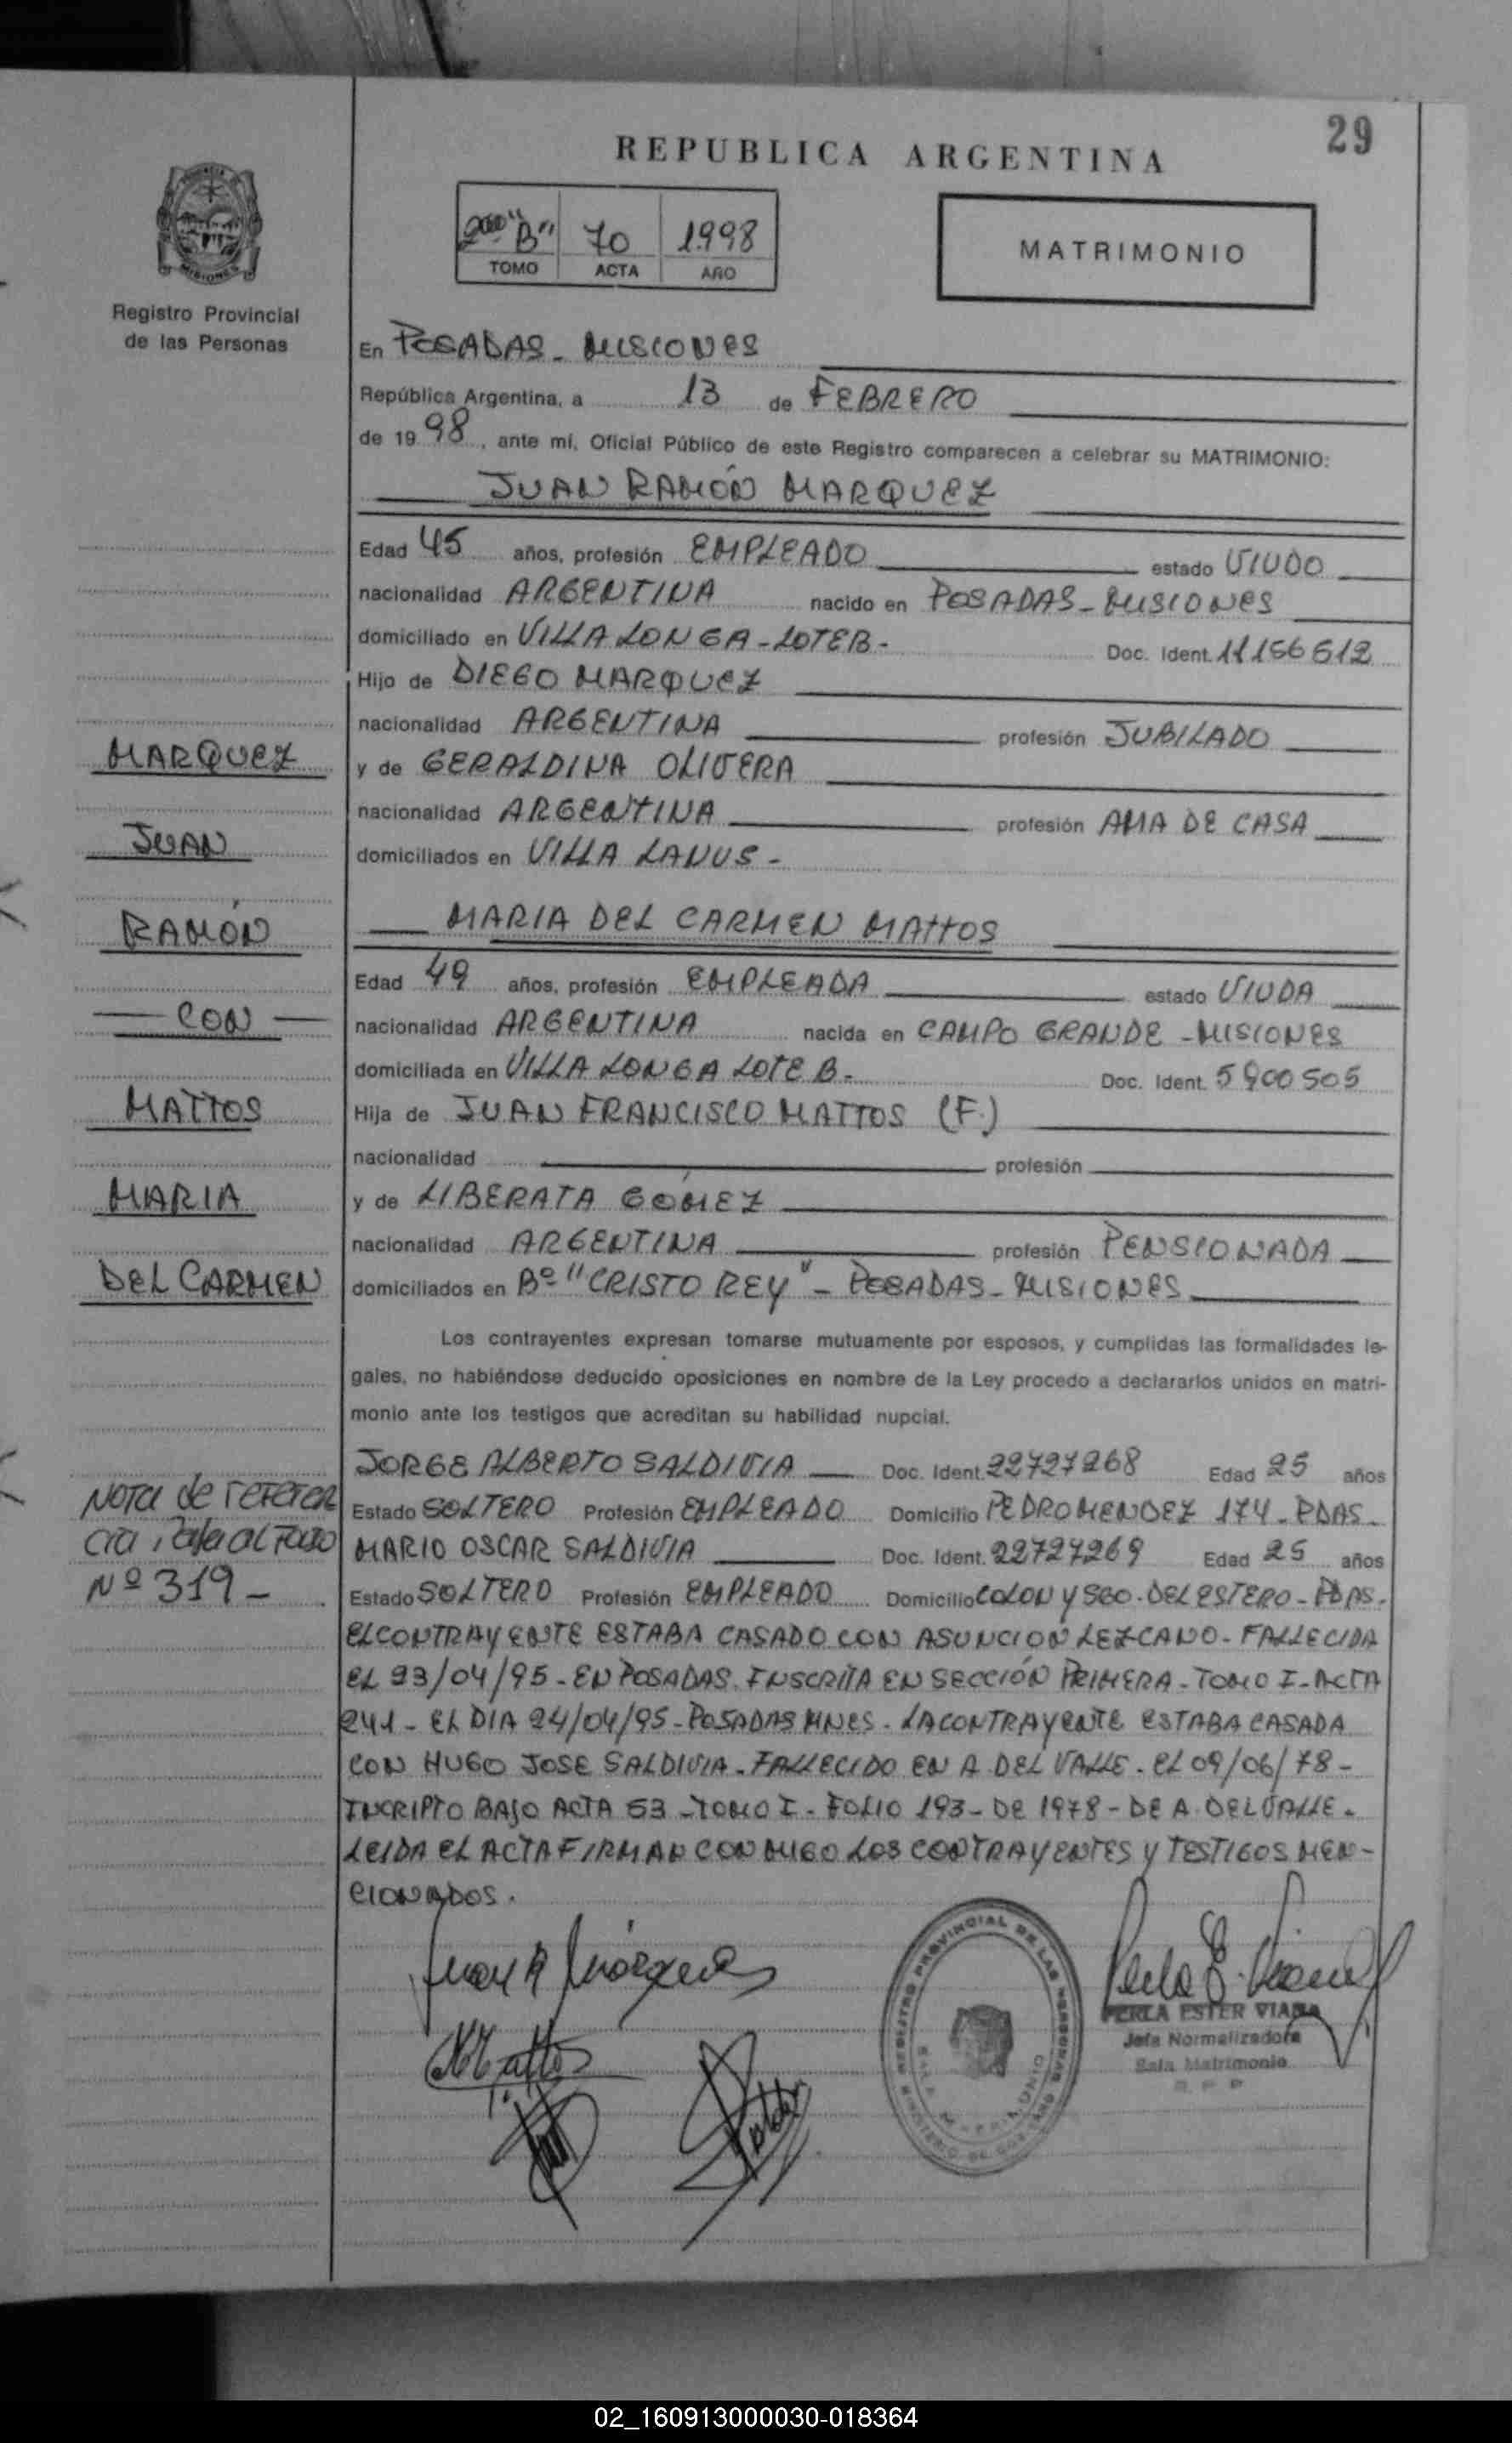 29
REPUBLICA ARGENTINA
"B" 70 1998
TOMO ACTA AÑO
MATRIMONIO
MISIONES
Registro Provincial
de las Personas
En POSADAS - MISIONES
República Argentina, a 13 de FEBRERO
de 19 98, ante mí, Oficial Público de este Registro comparecen a celebrar su MATRIMONIO:
JUAN RAMÓN MARQUEZ
Edad 45 años, profesión EMPLEADO estado VIUDO
nacionalidad ARGENTINA nacido en POSADAS - MISIONES
domiciliado en VILLA LONGA - LOTE B - Doc. Ident. 11156612
Hijo de DIEGO MARQUEZ
nacionalidad ARGENTINA profesión JUBILADO
y de GERALDINA OLIVERA
nacionalidad ARGENTINA profesión AMA DE CASA
domiciliados en VILLA LANUS -
MARIA DEL CARMEN MATTOS
Edad 49 años, profesión EMPLEADA estado VIUDA
nacionalidad ARGENTINA nacida en CAMPO GRANDE - MISIONES
domiciliada en VILLA LONGA LOTE B - Doc. Ident. 5900505
Hija de JUAN FRANCISCO MATTOS (F.)
nacionalidad profesión
y de LIBERATA GÓMEZ
nacionalidad ARGENTINA profesión PENSIONADA
domiciliados en Bº "CRISTO REY" - POSADAS - MISIONES
MARQUEZ
JUAN
RAMÓN
— CON —
MATTOS
MARIA
DEL CARMEN
Los contrayentes expresan tomarse mutuamente por esposos, y cumplidas las formalidades le-
gales, no habiéndose deducido oposiciones en nombre de la Ley procedo a declararlos unidos en matri-
monio ante los testigos que acreditan su habilidad nupcial.
JORGE ALBERTO SALDIVIA Doc. Ident. 22727268 Edad 25 años
Estado SOLTERO Profesión EMPLEADO Domicilio PEDRO MENDEZ 174 - PDAS -
MARIO OSCAR SALDIVIA Doc. Ident. 22727269 Edad 25 años
Estado SOLTERO Profesión EMPLEADO Domicilio COLON Y SGO. DEL ESTERO - PDAS -
EL CONTRAYENTE ESTABA CASADO CON ASUNCION LEZCANO - FALLECIDA
EL 23/04/95 - EN POSADAS. INSCRITA EN SECCIÓN PRIMERA - TOMO I - ACTA
241 - EL DIA 24/04/95 - POSADAS MNES - LA CONTRAYENTE ESTABA CASADA
CON HUGO JOSE SALDIVIA - FALLECIDO EN A. DEL VALLE - EL 09/06/78 -
INCRIPTO BAJO ACTA 53 - TOMO I - FOLIO 193 - DE 1978 - DE A. DEL VALLE -
LEIDA EL ACTA FIRMAN CONMIGO LOS CONTRAYENTES Y TESTIGOS MEN-
CIONADOS.
Nota de referen
cia, al Folio
Nº 319 -
Juan R Márquez
MMattos
REGISTRO PROVINCIAL DE LAS PERSONAS
MINISTERIO DE GOBIERNO
SALA MATRIMONIO
PERLA ESTER VIANA
Jefa Normalizadora
Sala Matrimonio
R P P
02_160913000030-018364